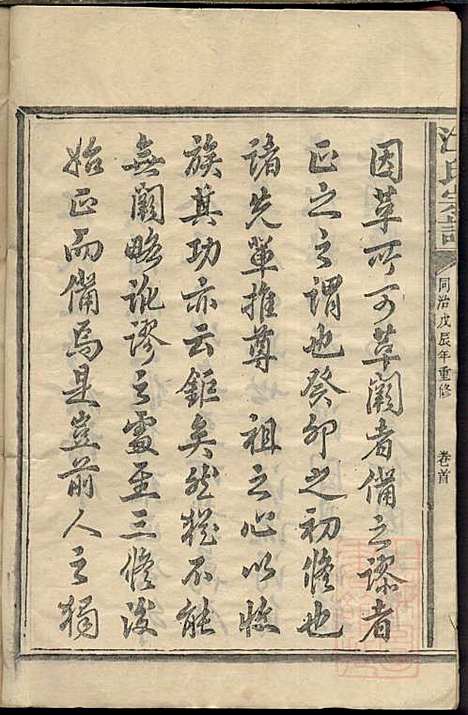 因革所可革闕者備之謬者
正之之謂也癸卯之初修也
諸先輩推尊祖之心以收
族其功亦云鉅矣然猶不能
無闕略訛謬之處至三修後
始正而備焉是豈前人之獨
氏宗譜
同治戊辰年重修
卷首